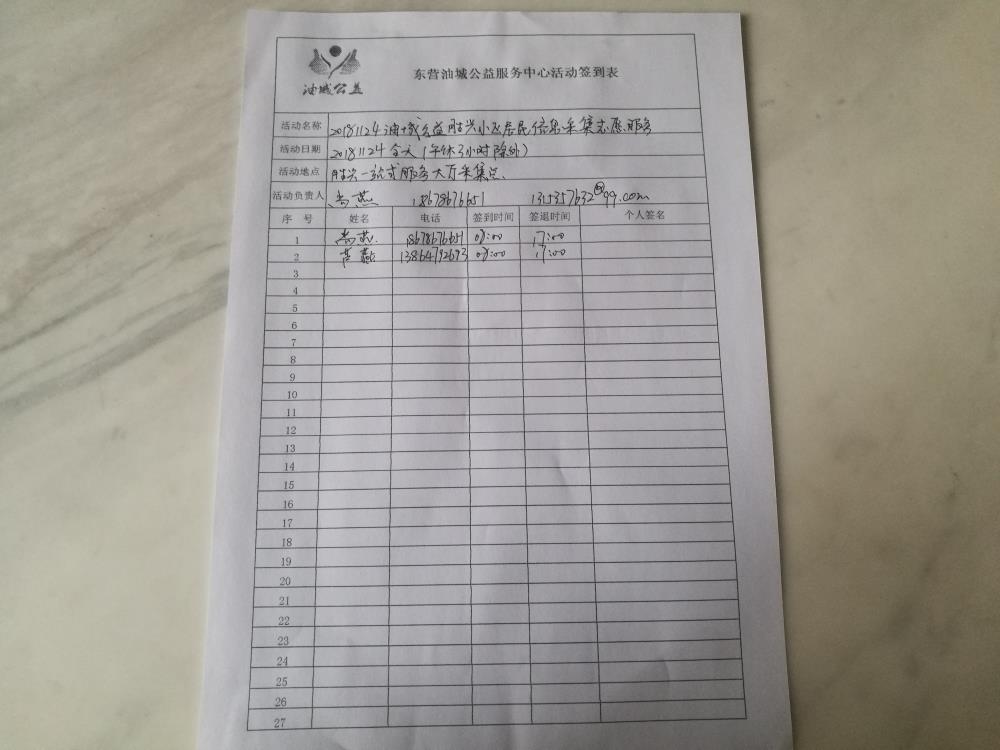 油城公益
东营油城公益服务中心活动签到表
活动名称 20181124油城公益胜兴小区居民信息采集志愿服务
活动日期 20181124 全天（午休3小时除外）
活动地点 胜兴一站式服务大厅采集点
活动负责人 尚燕 18678676651 1315357632@99.com
序号 姓名 电话 签到时间 签退时间 个人签名
1 尚燕 18678676651 09:00 17:00
2 13864792693 09:00 17:00
3
4
5
6
7
8
9
10
11
12
13
14
15
16
17
18
19
20
21
22
23
24
25
26
27